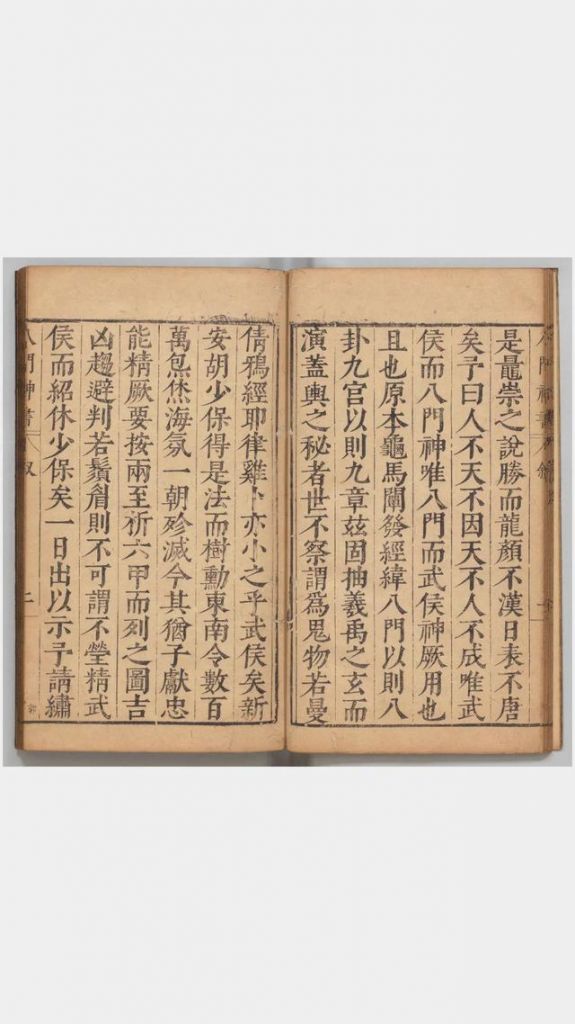 是鼂崇之說勝而龍顏不漢日表不唐
矣予曰人不天不因天不人不成唯武
侯而八門神唯八門而武侯神厥用也
且也原本龜馬闡發經緯八門以則八
卦九官以則九章玆固抽羲禹之玄而
演蓋輿之秘者世不察謂爲鬼物若曼
倩鴉經耶律雞卜亦小之乎武侯矣新
安胡少保得是法而樹勳東南令數百
萬焄烋海氛一朝殄滅今其猶子獻忠
能精厥要按兩至祈六甲而列之圖吉
凶趨避判若鬚眉則不可謂不瑩精武
侯而紹休少保矣一日出以示予請繡
八門神書 叙 二